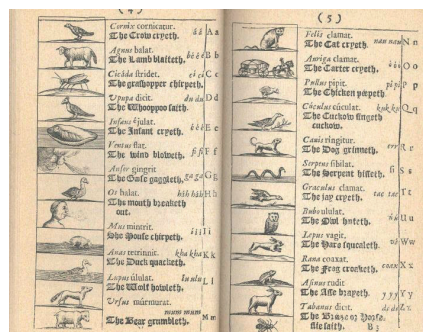 (4)
Cornix cornicatur.
The Crow cryeth. á á A a
Agnus balat.
The Lamb blaiteth. b é é é B b
Cicáda stridet.
The grashopper chirpeth. cì cì C c
Upupa dicit. du du D d
The Whooppoo saith.
Infans éjulat.
The Infant cryeth. é é é E e
Ventus flat.
The wind bloweth. fi fi F f
Anser gingrit
The Goose gaggleth. ga ga G g
Os halat. háh háh H h
The mouth breatheth
out.
Mus mintrit.
The Mouse chirpeth. í í í I i
Anas tetrinnit. kha kha K k
The Duck quacketh.
Lupus úlulat. lu ulu L l
The Wolf howleth.
Ursus múrmurat.
mum mum
The Bear grumbleth. M m
(5)
Felis clamat. nau nau N n
The Cat cryeth.
Auriga clamat. ò ò ò O o
The Carter cryeth.
Pullus pipit. pi pi P p
The Chicken peepeth.
Cúculus cúculat. kuk ku Q q
The Cuckow singeth
cuckow.
Canis ringitur. err R r
The Dog grinneth.
Serpens sibilat. si S s
The Serpent hisseth.
Graculus clamat. tac tac T t
The Jay cryeth.
Bubo ululat. ú ú U u
The Owl hooteth.
Lepus vagit. vá W w
The Hare squeaketh.
Rana coaxat. coax X x
The Frog croaketh.
Asinus rudit y y y Y y
The Asse brayeth.
Tabanus dicit. ds ds Z z
The Breeze or Horse-
flie saith. B 3